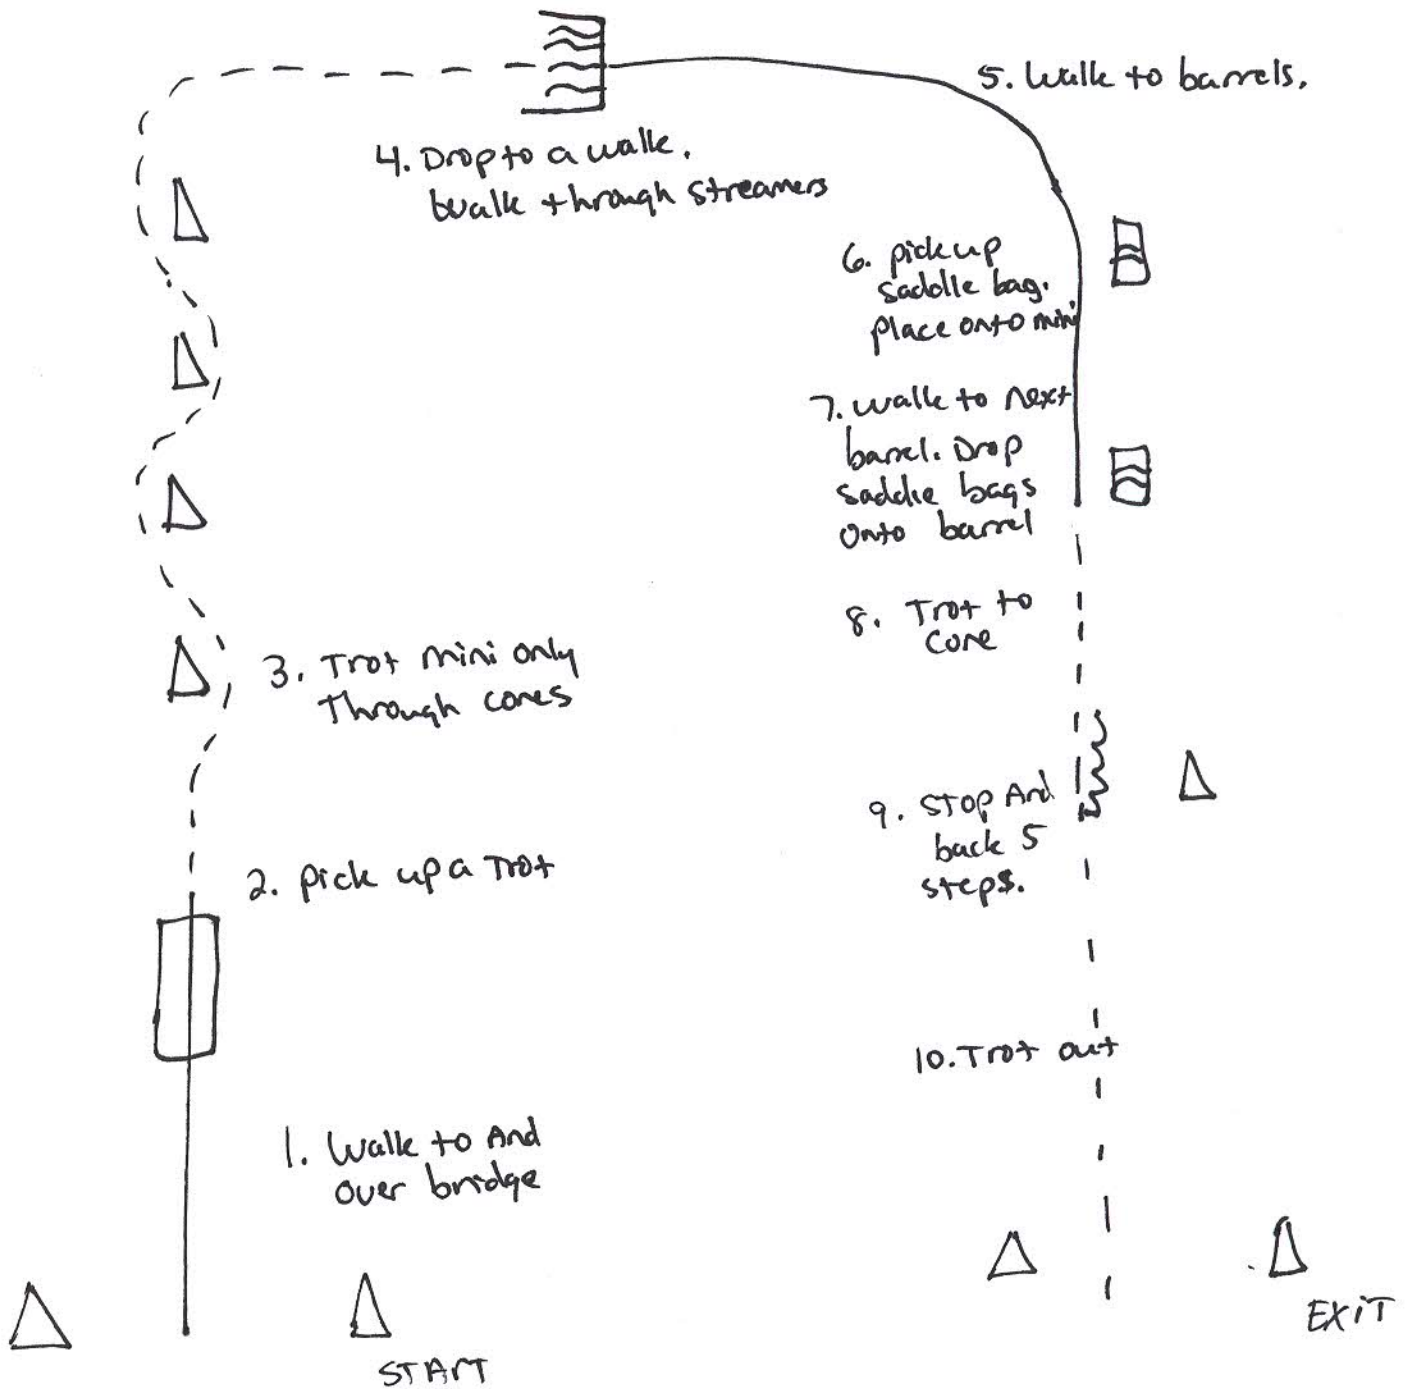 5. Walk to barrels.
4. Drop to a walk.
Walk through streamers
6. pick up
saddle bag.
Place onto mini
7. Walk to next
barrel. Drop
saddle bags
onto barrel
8. Trot to
cone
3. Trot mini only
Through cones
9. Stop And
back 5
steps.
2. pick up a Trot
10. Trot out
1. Walk to And
over bridge
START
EXIT